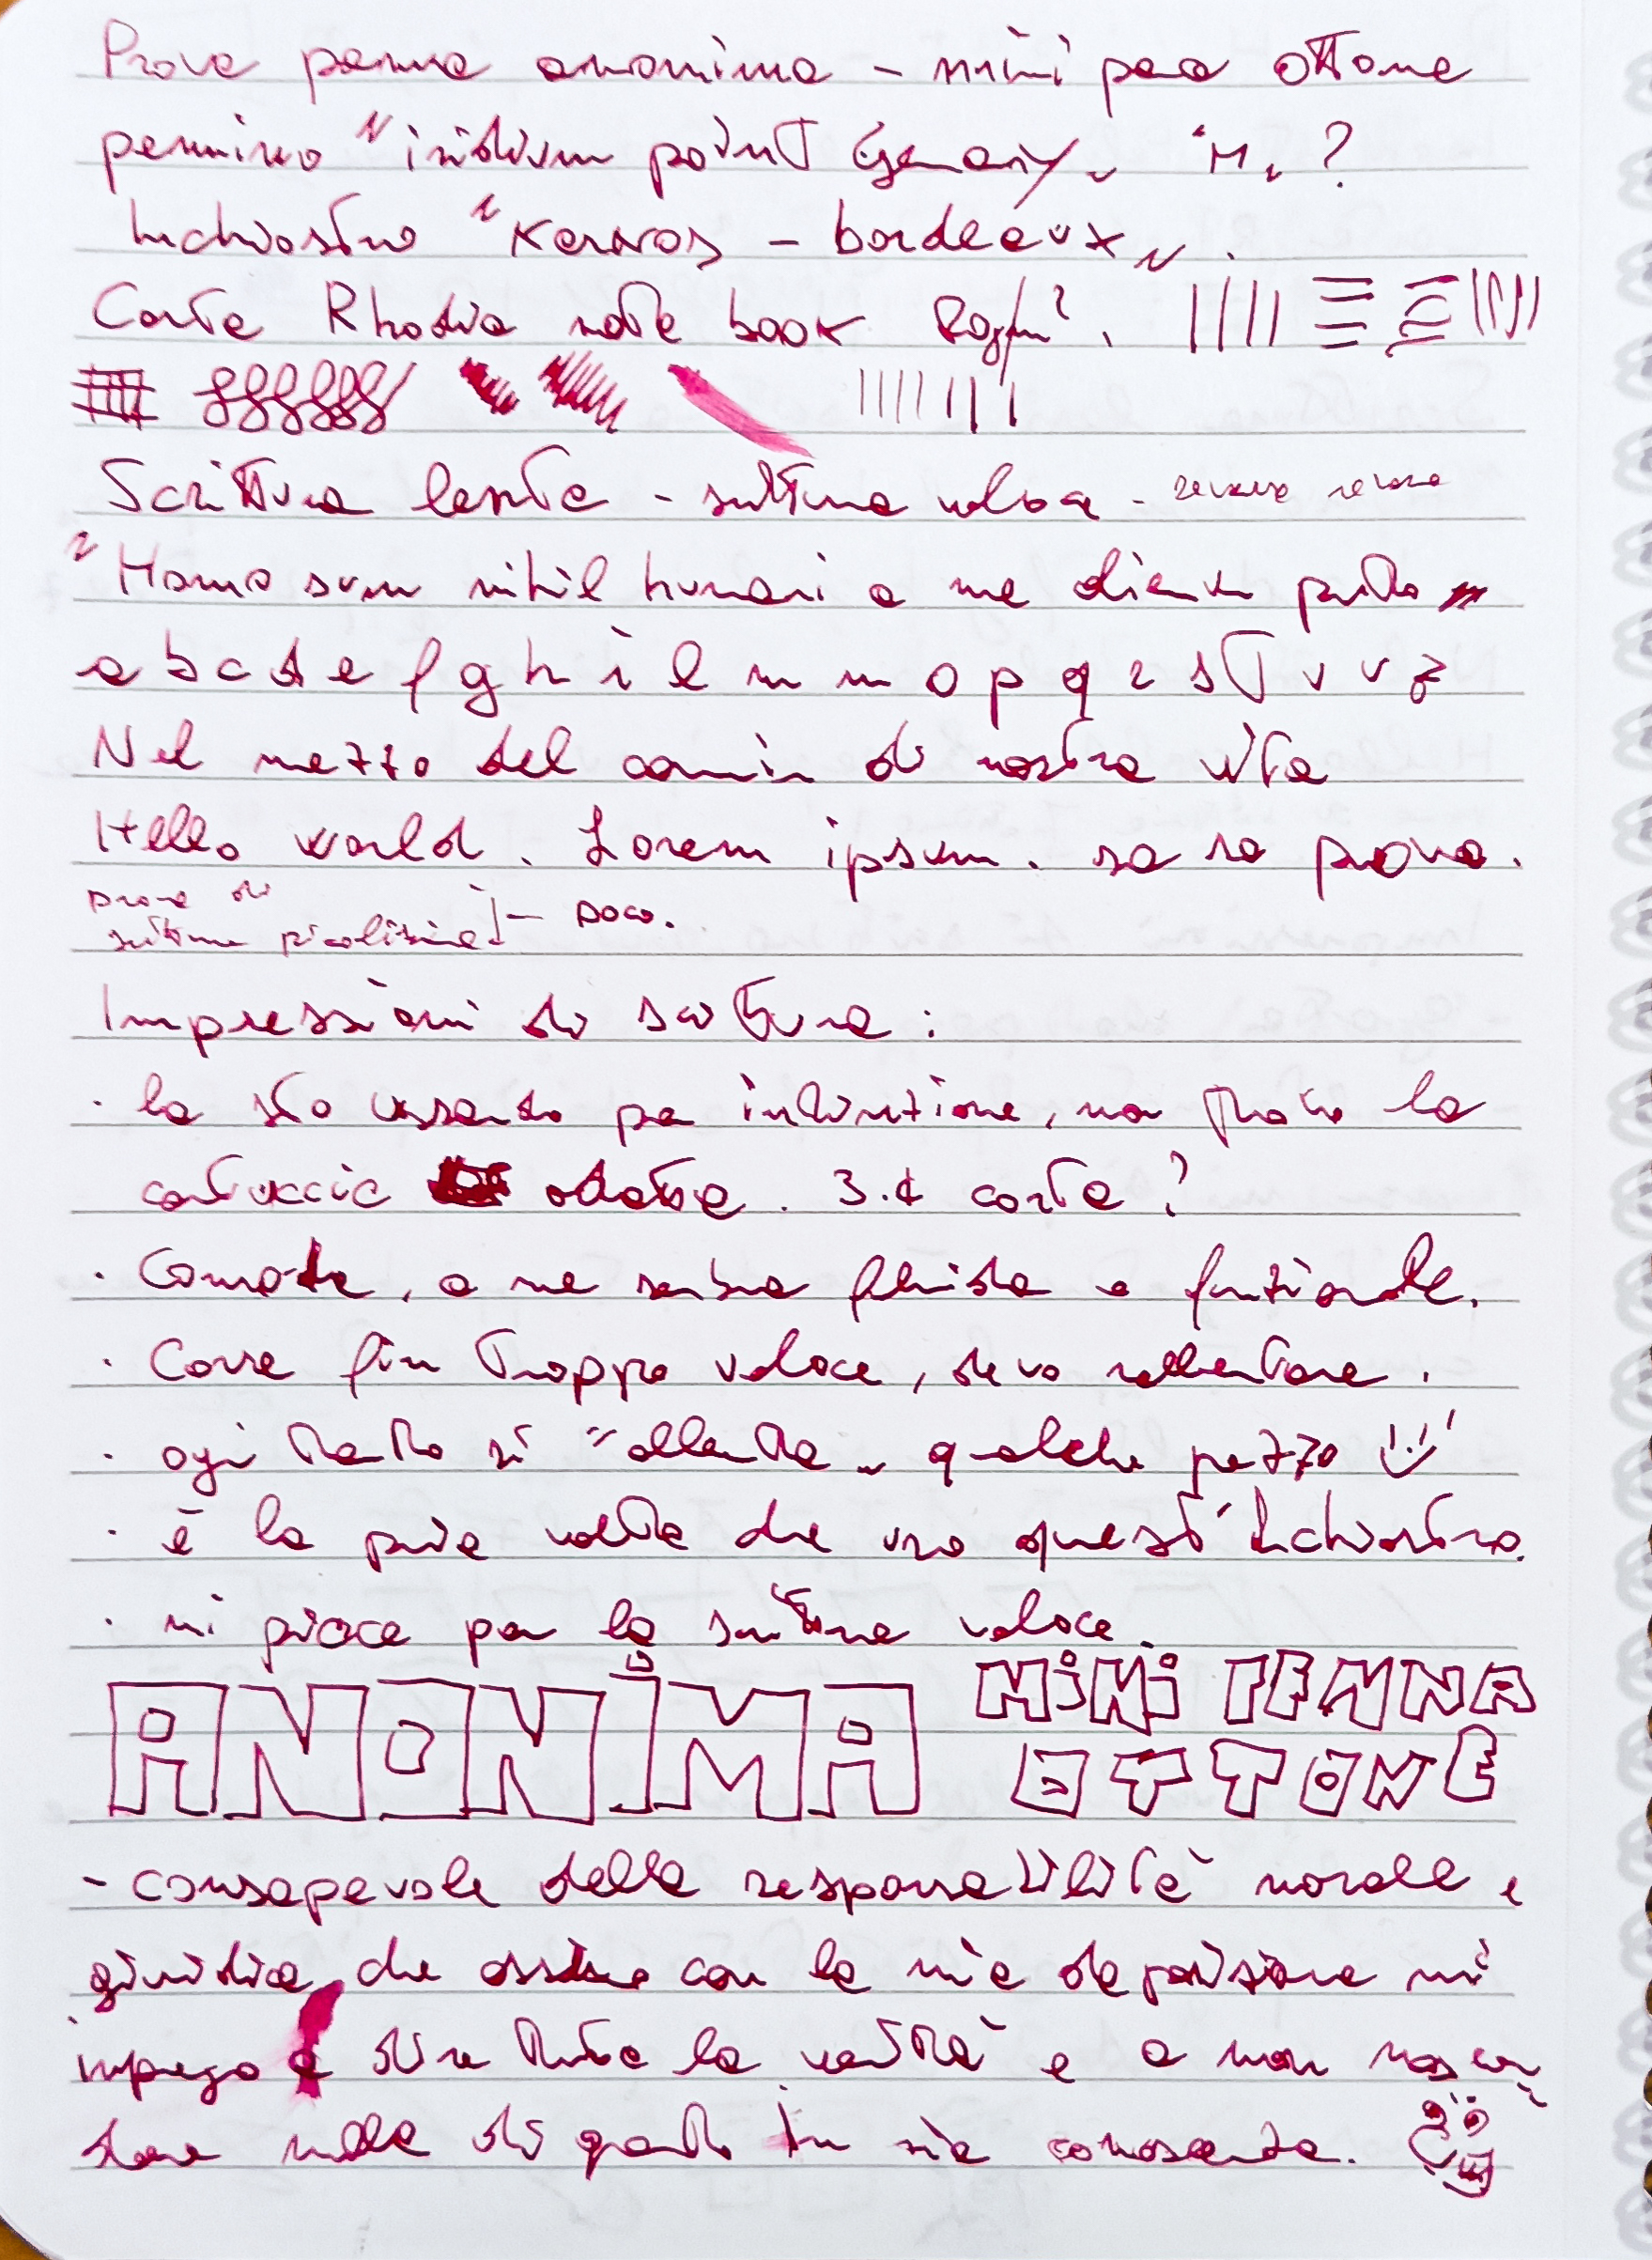 Prova penna anonima - mini penna ottone
pennino "iridium point Germany" "M"?
Inchiostro "Kaweco - bordeaux".
Carta Rhodia note book 80g/m².
Scrittura lenta - scrittura veloce - reverse reverse
"Homo sum nihil humani a me alienum puto"
a b c d e f g h i l m n o p q r s t u v z
Nel mezzo del camin di nostra vita
Hello world. Lorem ipsum. sa sa prova.
prova di
scrittura piccolissima - poco.
Impressioni di scrittura:
· la sto usando per intinzione, non trovo la
cartuccia adatta. 3.4 corta?
· Comoda, a me sembra fluida e funzionale.
· Corre fin troppo veloce, devo rallentare.
· ogni tanto si "allenta" qualche pezzo
· è la prima volta che uso quest'inchiostro.
· mi piace per la scrittura veloce.
ANONIMA MiNi PENNA
OTTONE
- consapevole della responsabilità morale e
giuridica che assumo con la mia deposizione mi
impegno a dire tutta la verità e a non nascon-
dere nulla di quanto in mia conoscenza.